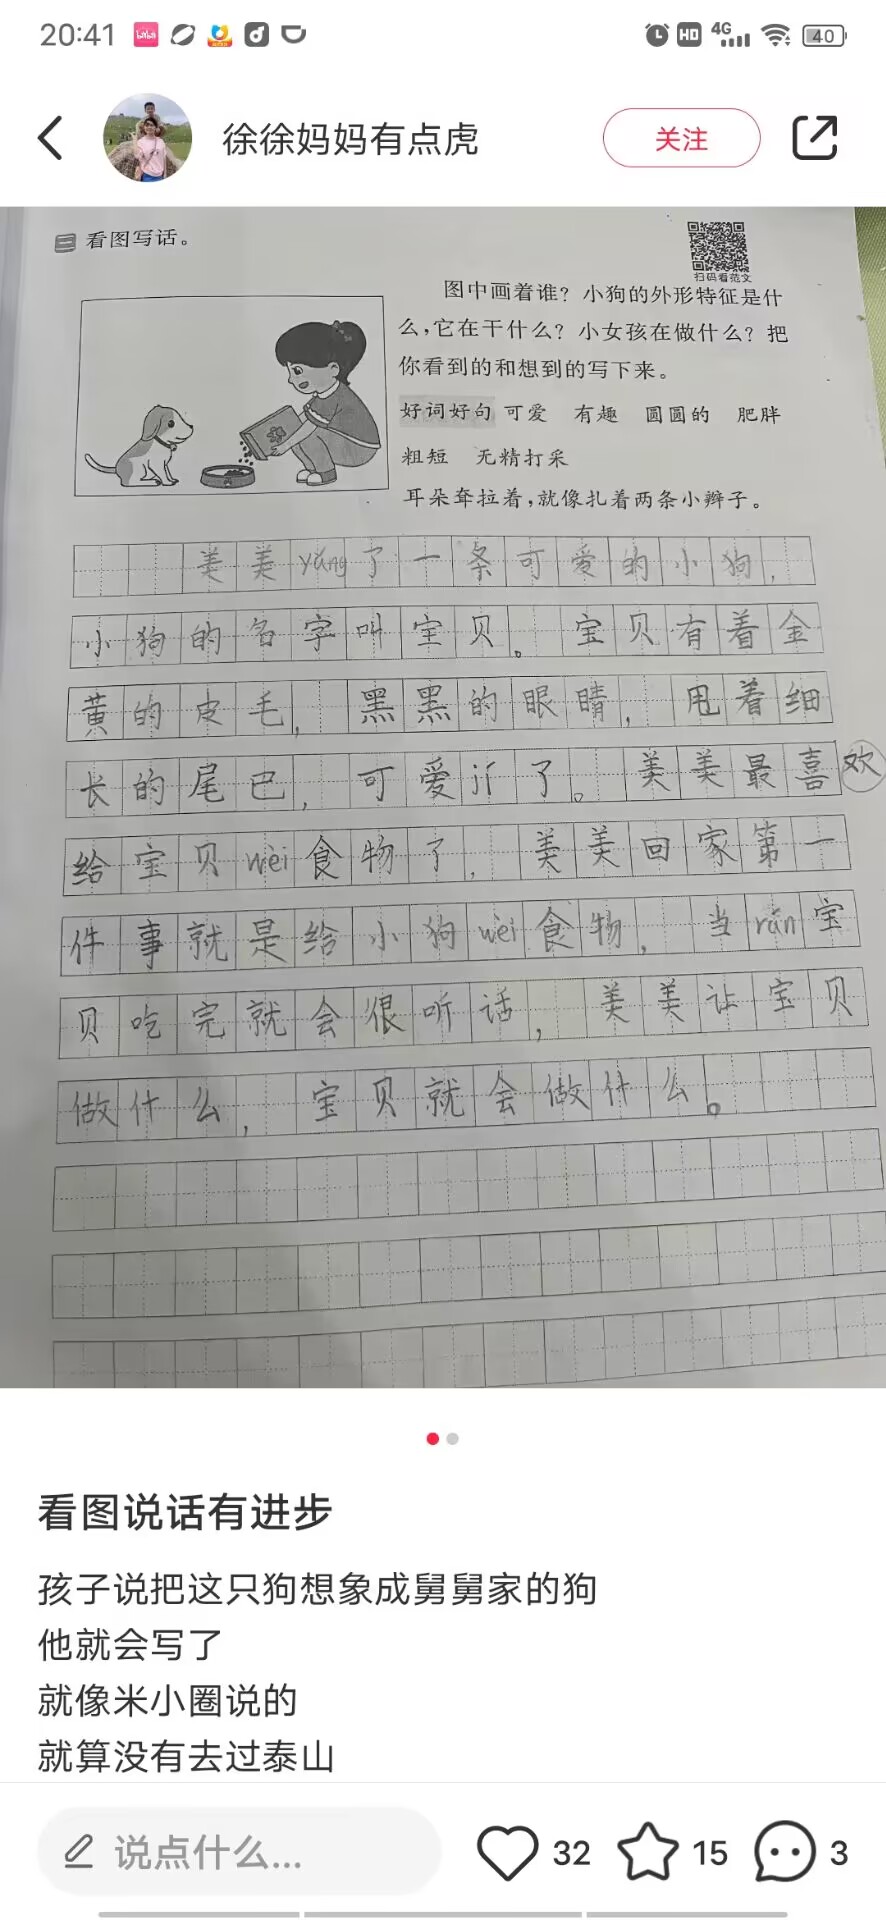 20:41
HD 4G 40
徐徐妈妈有点虎
关注
三 看图写话。
扫码看范文
图中画着谁？小狗的外形特征是什
么，它在干什么？小女孩在做什么？把
你看到的和想到的写下来。
好词好句 可爱 有趣 圆圆的 肥胖
粗短 无精打采
耳朵耷拉着，就像扎着两条小辫子。
美美yǎng了一条可爱的小狗，
小狗的名字叫宝贝。宝贝有着金
黄的皮毛，黑黑的眼睛，甩着细
长的尾巴，可爱jí了。美美最喜欢
给宝贝wèi食物了，美美回家第一
件事就是给小狗wèi食物，当rán宝
贝吃完就会很听话，美美让宝贝
做什么，宝贝就会做什么。
看图说话有进步
孩子说把这只狗想象成舅舅家的狗
他就会写了
就像米小圈说的
就算没有去过泰山
说点什么...
32
15
3